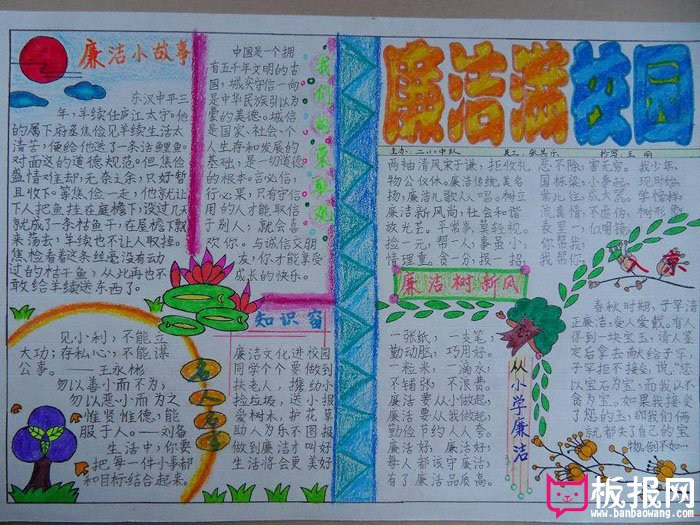 廉洁小故事
东汉中平三
年，羊续任庐江太守。他
的属下府丞焦俭见羊续生活太
清苦，便给他送了一条活鲤鱼。
对面这的道德规范。但焦俭
盛情难却，无奈之余，只好暂
且收下。等焦俭一走，他就让
下人把鱼挂在庭檐下，没过几天
就成了一条枯鱼干，在屋檐下飘
来荡去，羊续也不让人取掉。
焦俭看着这条丝毫没有动
过的枯干鱼，从此再也不
敢给羊续送东西了。
中国是一个拥
有五千年文明的古
国，城兴守信一向
是中华民族引以为
豪的美德。诚信
是国家、社会、个
人生存和发展的
基础，是一切道德
的根本。言必信，
行必果，只有守信
用的人才能取信
于别人，就会喜
欢你。与诚信交朋
友，你才能享受
成长的快乐。
廉洁满校园
两袖清风宋子谦，拒收礼
物公仪休。廉洁传统美名
扬，廉洁儿歌人人唱。树立
廉洁新风尚，社会和谐
放光芒。平常事，莫轻视。
捡一元，帮一人；事虽小，
情理重。贪一分，损一招，
廉洁树新风
知识窗
廉洁文化进校园
同学个个要做到
扶老人，携幼小
捡垃圾，送小报
爱树木，护花草
助人为乐不图报
做到廉洁才叫好
生活将会更美好
见小利，不能立
大功；存私心，不能谋
公事。——王永彬
勿以善小而不为，
勿以恶小而为之
惟贤惟德，能
服于人。——刘备
生活中，你要
把每一件小事都
和目标结合起来。
名人名言
一张纸，一支笔，
勤动脑，巧用好。
一粒米，一滴水，
不铺张，不浪费。
廉洁要从小做起，
廉洁要从我做起，
勤俭节约人人夸。
廉洁好，廉洁好，
每人都该守廉洁，
有了廉洁品质高。
从小学廉洁
春秋时期，子罕清
正廉洁，受人爱戴。有人
得到一块宝玉，请人鉴
定后拿去献给子罕，
子罕拒不接受，说：“您
以宝石为宝，而我以不
贪为宝。如果我接受
了您的玉，那我们俩
就都失了自己的宝
物。倒不如…
板报网
www.banbaowang.com